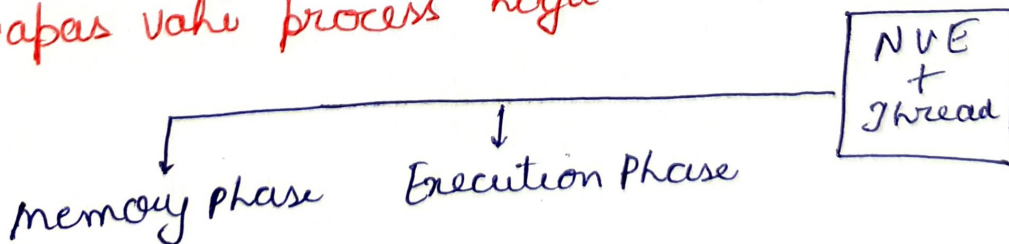 apas vahi process hoga
NVE
+
Thread
Memory Phase
Execution Phase